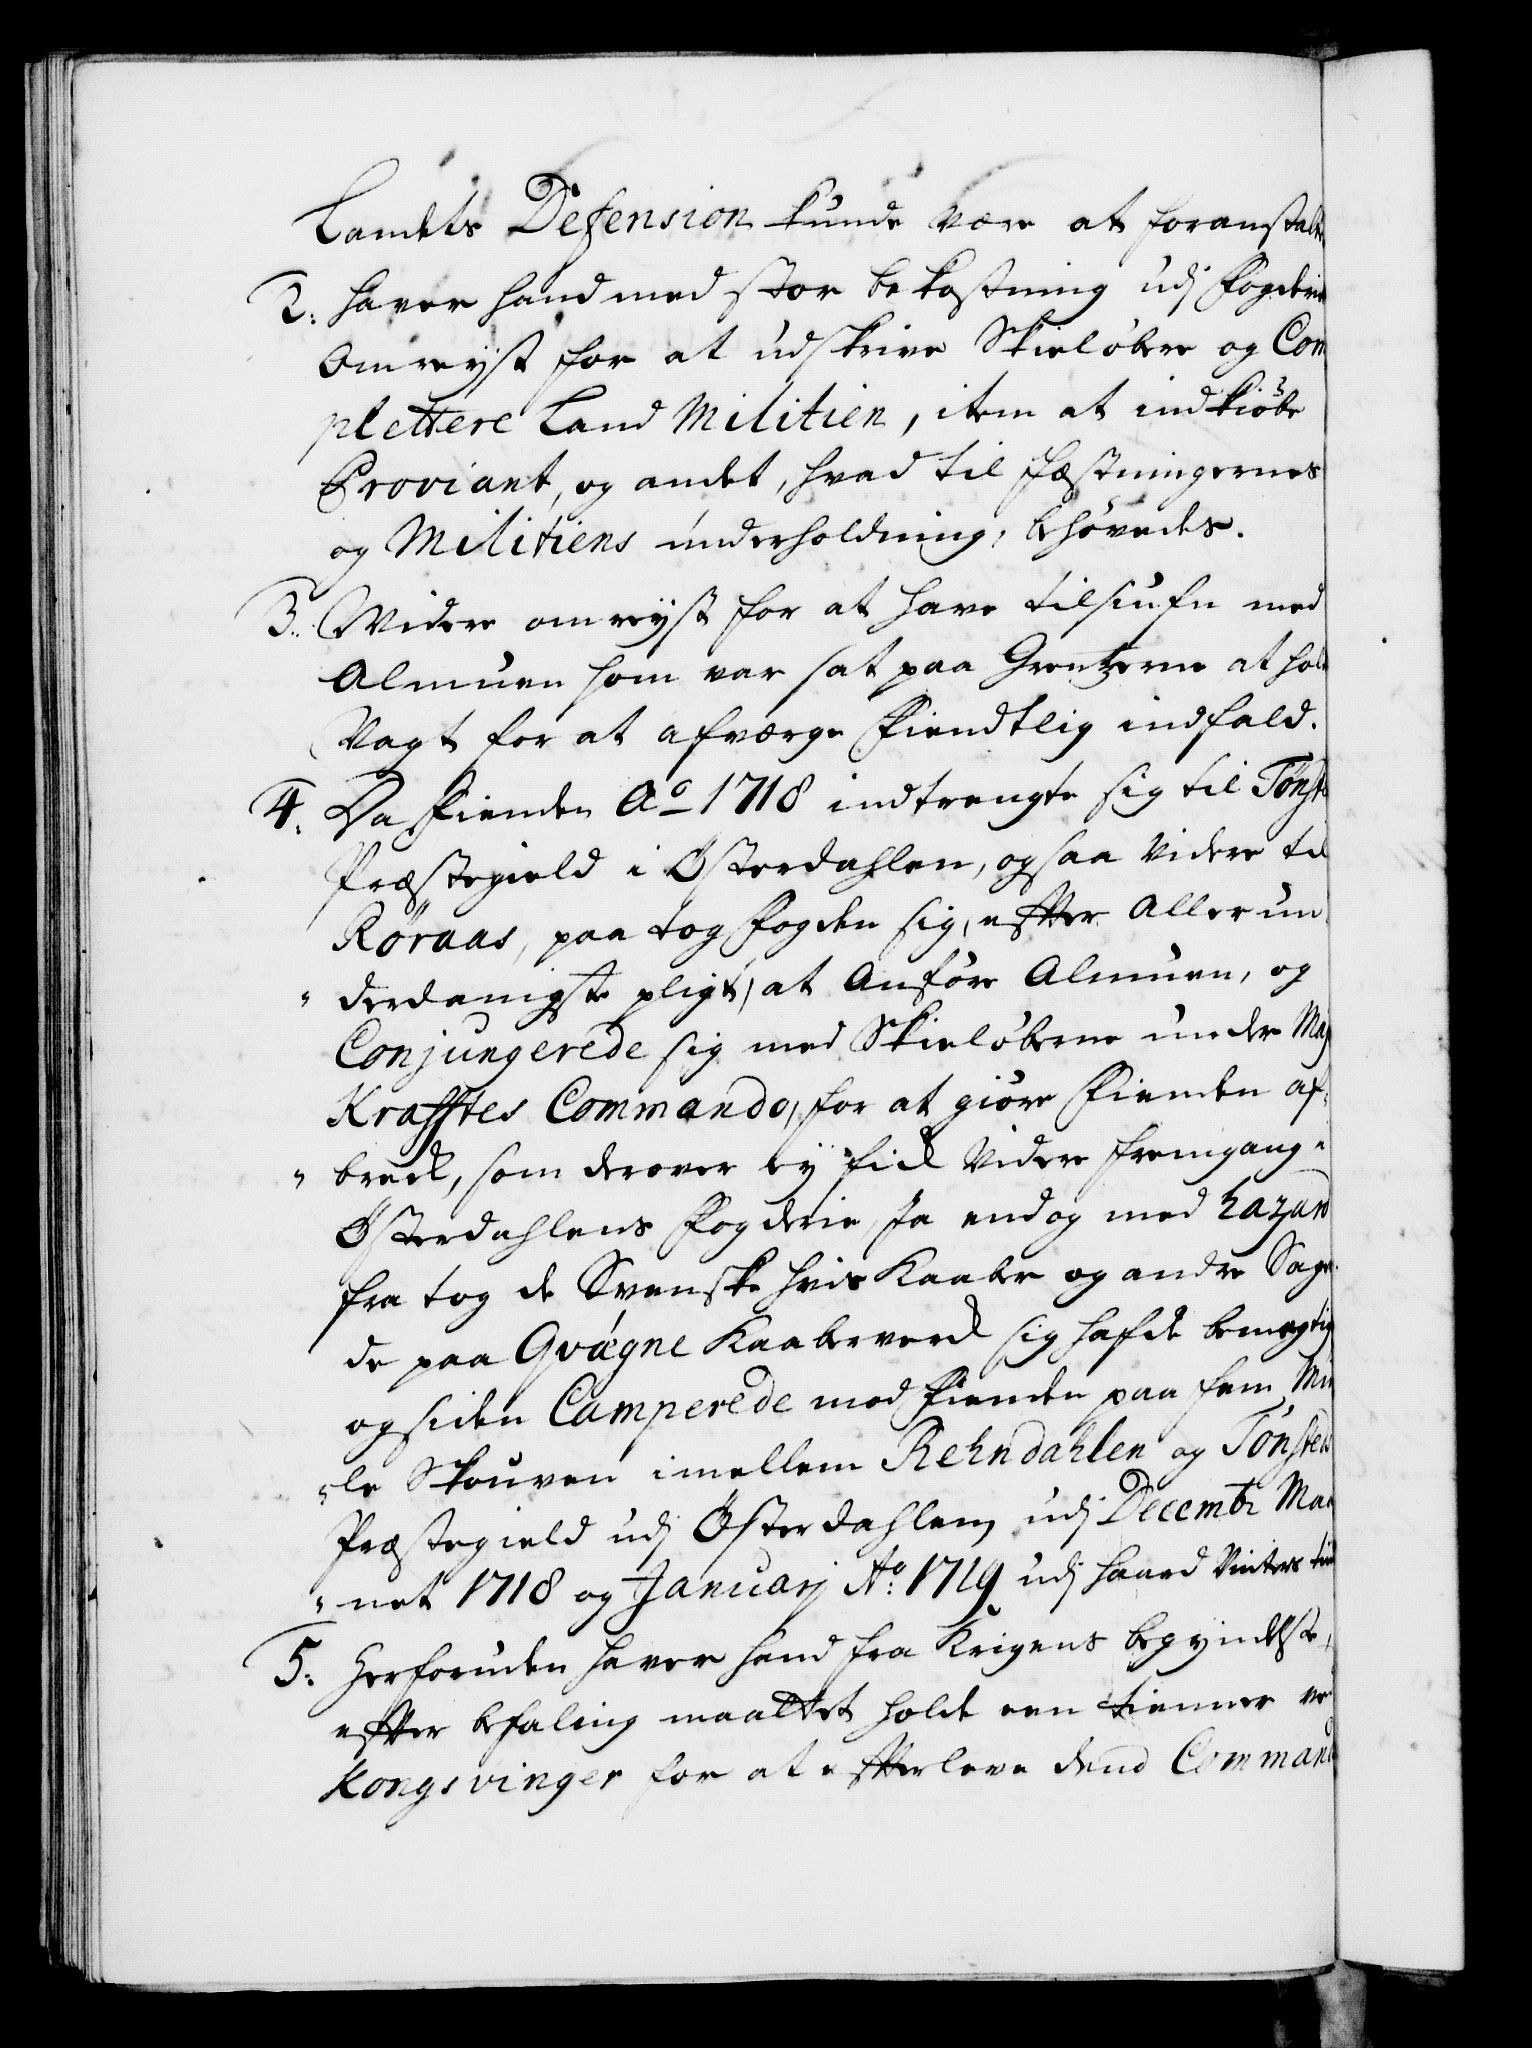 Landets Defension kunde være at foranstalte
2: haver hand med stor bekostning udj Fogderie
Omreyst for at udskrive Skieløbere og Com
plettere Land Militien, item at indkiøbe
Proviant, og andet, hvad til Fæstningernes
og Militiens underholdning, behøvedes.
3: Widere omreyst for at have tilsiufn med
Almuen som var sat paa Grentzerne at hold
Vagt for at afværge Fiendtlig indfald.
4. Da Fienden Ao 1718 indtrengte sig til Tønste
Præstegield i Østerdahlen, og saa Videre til
Røraas, paa tog Fogden sig, effter Allerun
" derdanigste pligt, at Anføre Almuen, og
Conjungerede sig med Skieløberne under Maj
Krafftes Commando, for at giøre Fienden af:
" bred, som derover ey fick Videre fremgang "
Østerdahlens Fogderie, Ja endog med hazard
fra tog de Svenske hvis Kaaber og andre Sager
de paa Qvægne Kaaberverck sig hafde bemegtig
og siden Camperede mod Fienden paa fem Mii
"le Skouven imellem Rehndahlen og Tønsteds
Præstegield udj Østerdahlen, udj Decembr Maa
" net 1718 og Januarj Ao: 1719 udj haard Vinters tid
5: Herforuden haver hand fra Krigens begyndelse,
effter befaling maattet holde een tienner ve
Kongsvinger for at effterleve dend Command